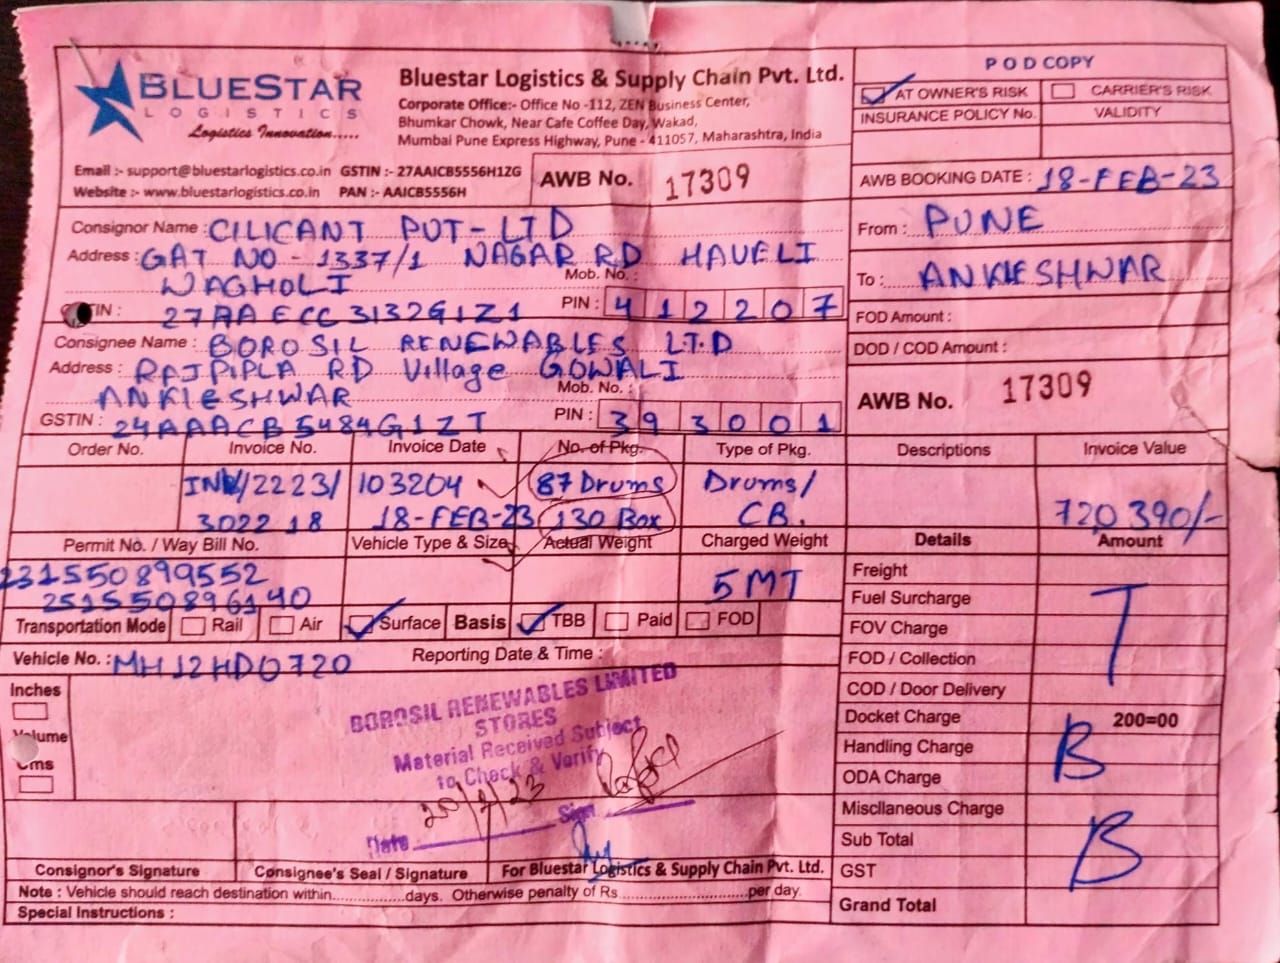 BLUESTAR
LOGISTICS
Logistics Innovation.....
Bluestar Logistics & Supply Chain Pvt. Ltd.
Corporate Office:- Office No -112, ZEN Business Center,
Bhumkar Chowk, Near Cafe Coffee Day, Wakad,
Mumbai Pune Express Highway, Pune - 411057, Maharashtra, India
Email :- support@bluestarlogistics.co.in GSTIN :- 27AAICB5556H1ZG
Website :- www.bluestarlogistics.co.in PAN :- AAICB5556H
AWB No. 17309
POD COPY
AT OWNER'S RISK CARRIER'S RISK
INSURANCE POLICY No. VALIDITY
AWB BOOKING DATE : 18-FEB-23
From : PUNE
To : ANKLESHWAR
FOD Amount :
DOD / COD Amount :
AWB No. 17309
Consignor Name : CILICANT PVT-LTD
Address : GAT NO - 1337/1 NAGAR RD HAVELI
WAGHOLI Mob. No. :
IN : 27AAECC3132G1Z1 PIN : 412207
Consignee Name : BOROSIL RENEWABLES LTD
Address : RAJPIPLA RD Village GOWALI
ANKLESHWAR Mob. No. :
GSTIN : 24AAACB5484G1ZT PIN : 393001
Order No. Invoice No. Invoice Date No. of Pkg. Type of Pkg. Descriptions Invoice Value
INV/2223/ 103204 87 Drums Drums/
302218 18-FEB-23 130 Box CB. 720390/-
Permit No. / Way Bill No. Vehicle Type & Size Actual Weight Charged Weight Details Amount
231550899552
251550896140 5MT
Transportation Mode Rail Air Surface Basis TBB Paid FOD
Vehicle No. : MH12HD0720 Reporting Date & Time :
Inches
Volume
Cms
BOROSIL RENEWABLES LIMITED
STORES
Material Received Subject
to Check & Verify
Date 20/2/23 Sign
Freight
Fuel Surcharge
FOV Charge
FOD / Collection
COD / Door Delivery
Docket Charge 200=00
Handling Charge
ODA Charge
Miscllaneous Charge
Sub Total
GST
Grand Total
T
B
B
Consignor's Signature Consignee's Seal / Signature For Bluestar Logistics & Supply Chain Pvt. Ltd.
Note : Vehicle should reach destination within................days. Otherwise penalty of Rs ............................per day.
Special Instructions :